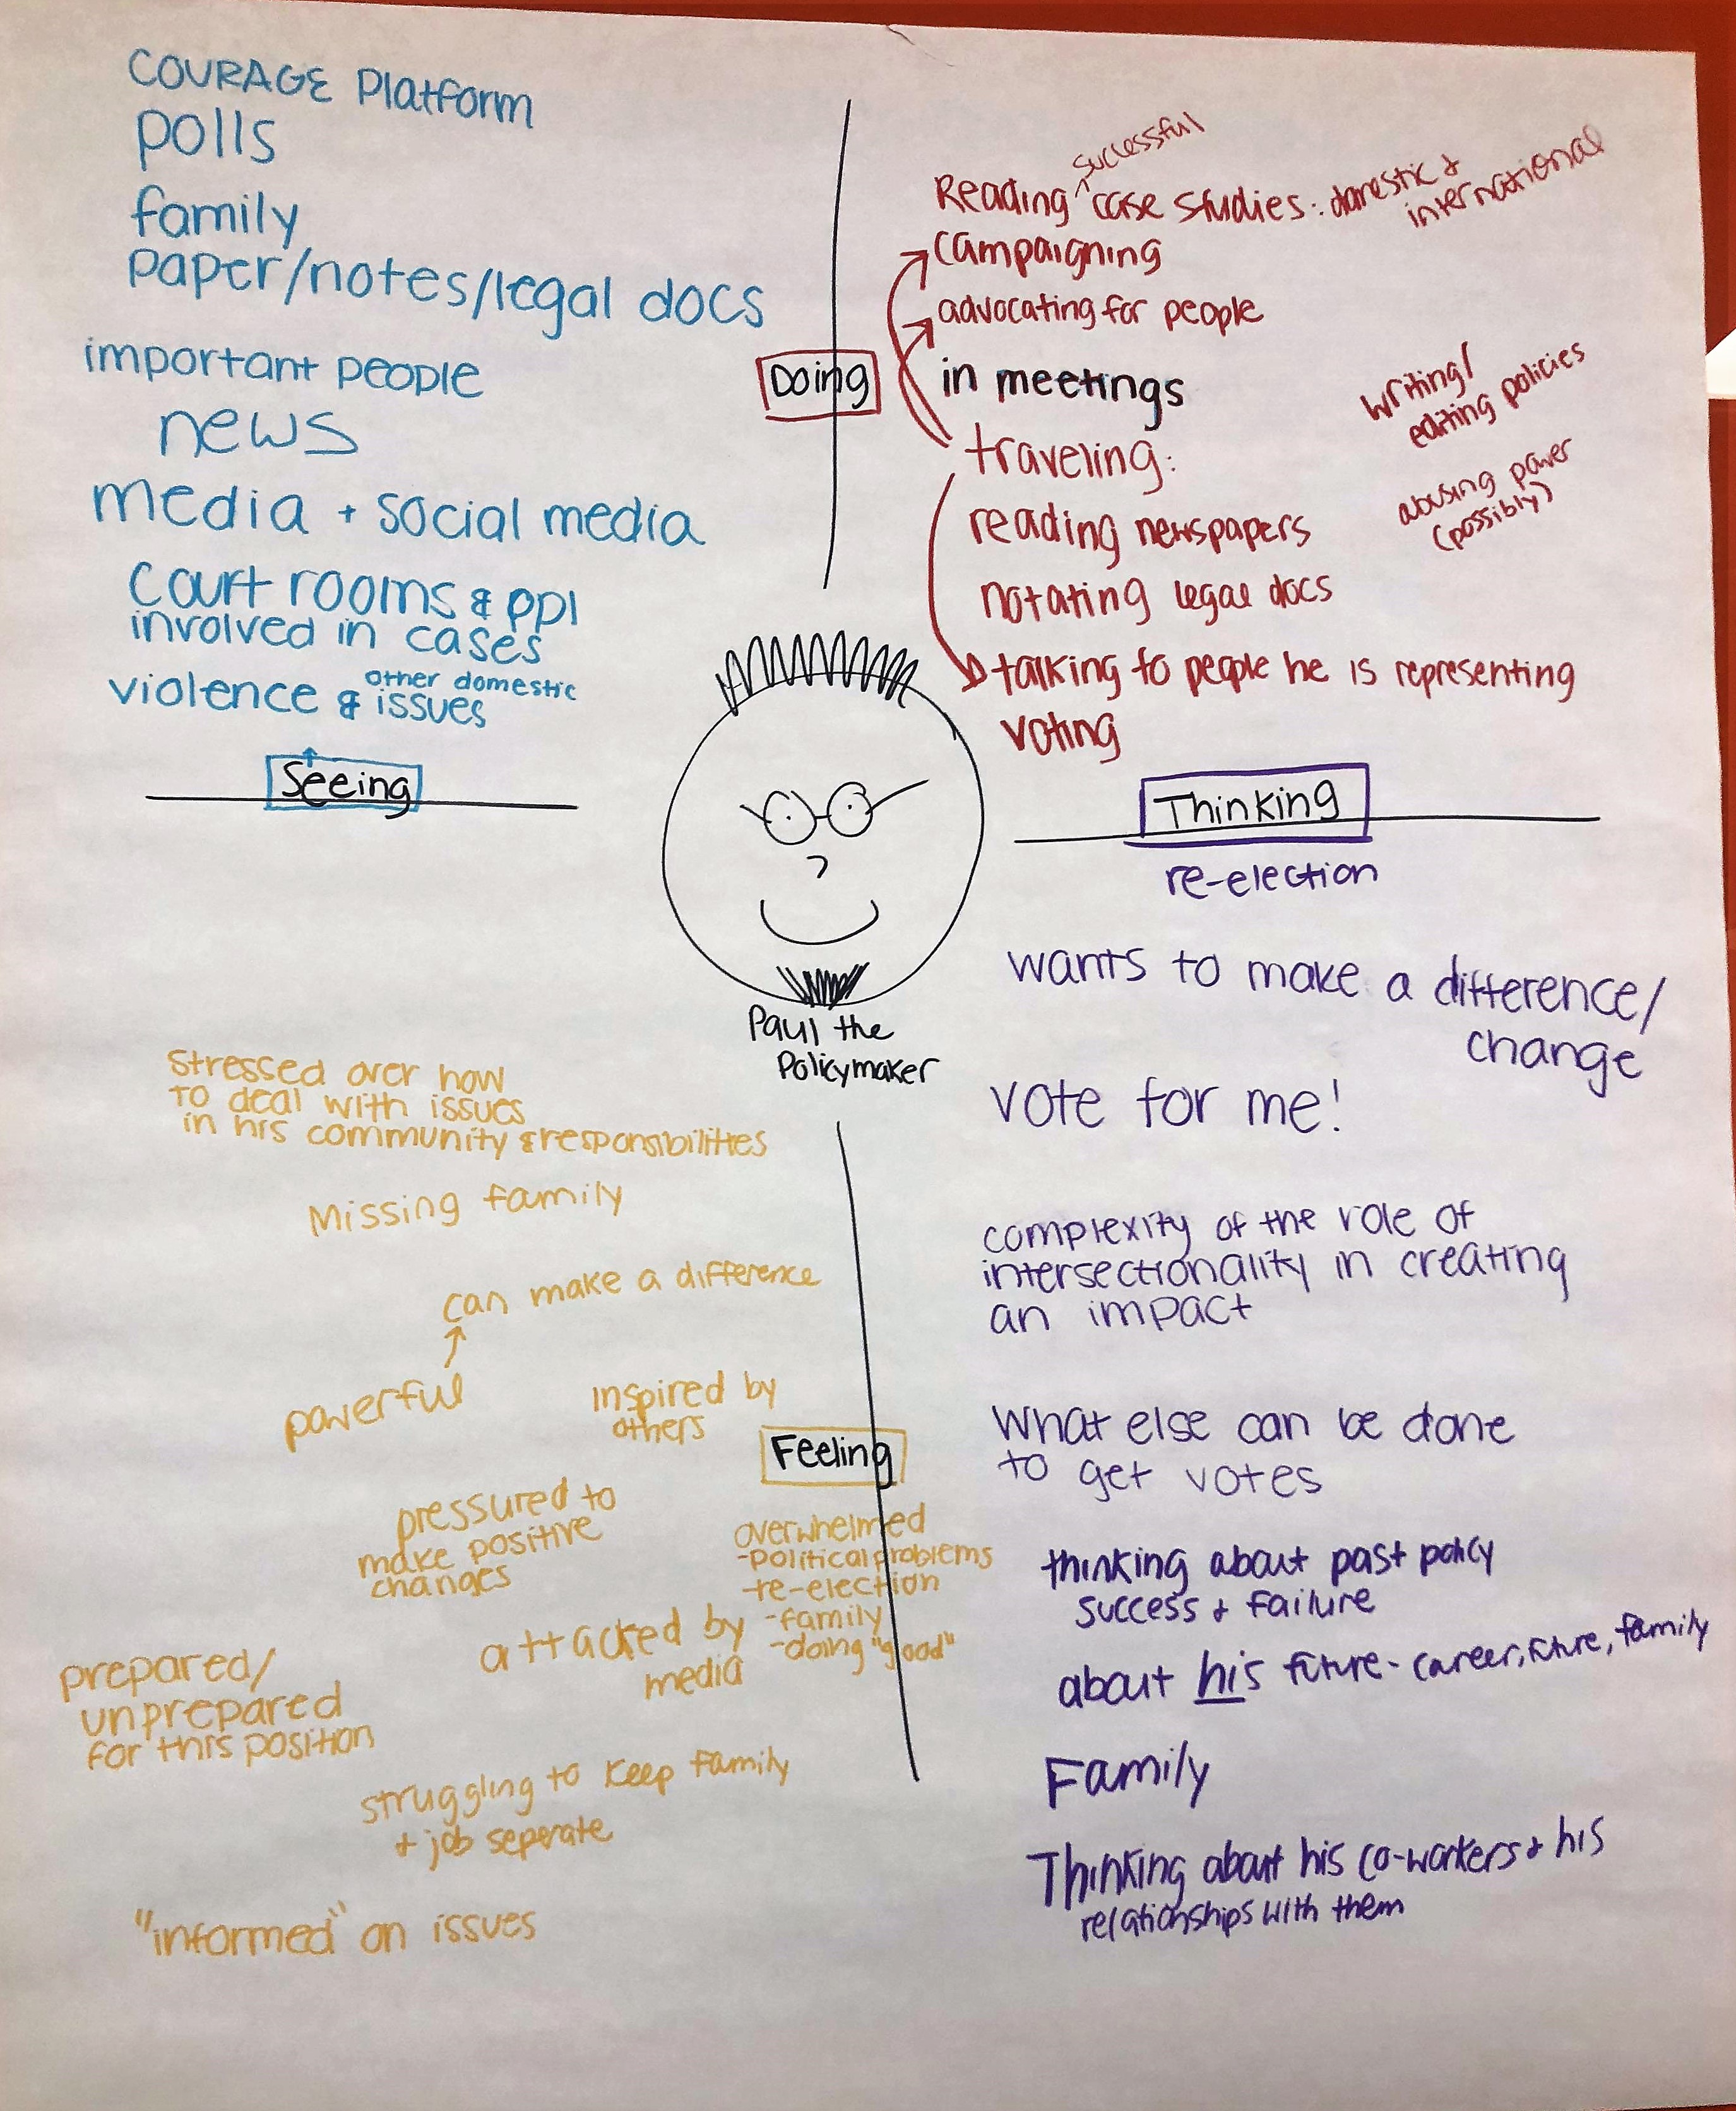 COURAGE Platform
polls
family
paper/notes/legal docs
important people
news
media + social media
court rooms & ppl
involved in cases
other domestic
violence & issues
Seeing
Doing
successful
Reading ^ case studies: domestic &
international
campaigning
advocating for people
in meetings
writing/
editing policies
traveling:
abusing power
(possibly)
reading newspapers
notating legal docs
talking to people he is representing
voting
Paul the
Policymaker
Thinking
re-election
wants to make a difference/
change
vote for me!
complexity of the role of
intersectionality in creating
an impact
What else can be done
to get votes
thinking about past policy
success & failure
about his future - career, future, family
Family
Thinking about his co-workers & his
relationships with them
Stressed over how
to deal with issues
in his community & responsibilities
Missing family
can make a difference
powerful
Inspired by
others
Feeling
pressured to
make positive
changes
overwhelmed
-political problems
-re-election
-family
-doing "good"
attacked by
media
prepared/
unprepared
for this position
struggling to keep family
+ job seperate
"informed" on issues